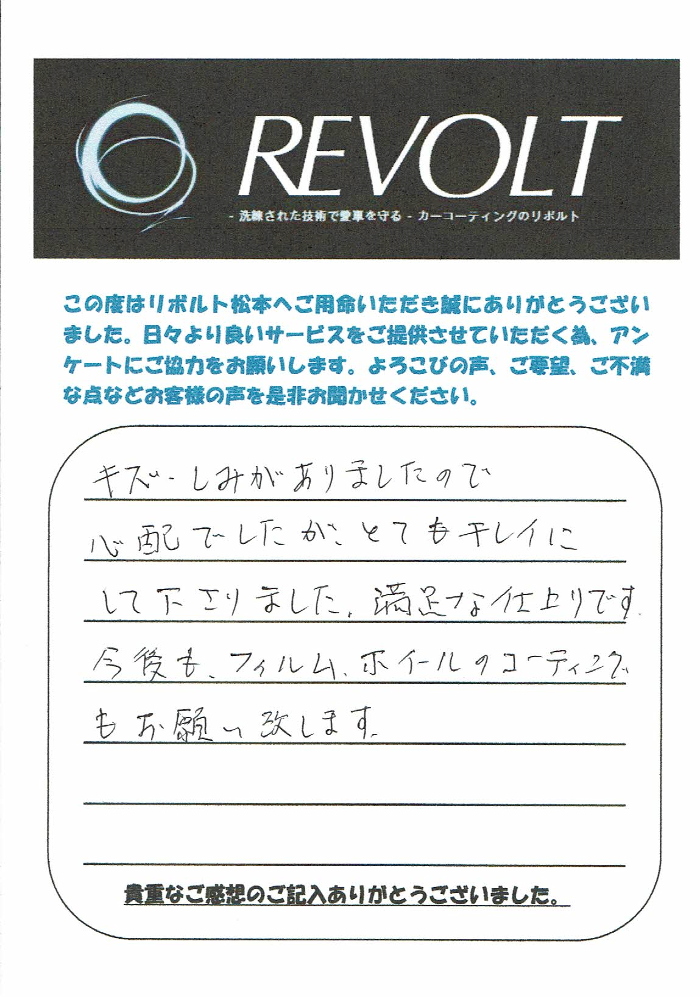 REVOLT
- 洗練された技術で愛車を守る - カーコーティングのリボルト
この度はリボルト松本へご用命いただき誠にありがとうござい
ました。日々より良いサービスをご提供させていただく為、アン
ケートにご協力をお願いします。よろこびの声、ご要望、ご不満
な点などお客様の声を是非お聞かせください。
キズ・しみがありましたので
心配でしたが、とてもキレイに
して下さりました。満足な仕上りです。
今後も、フィルム、ホイールのコーティング
もお願い致します。
貴重なご感想のご記入ありがとうございました。